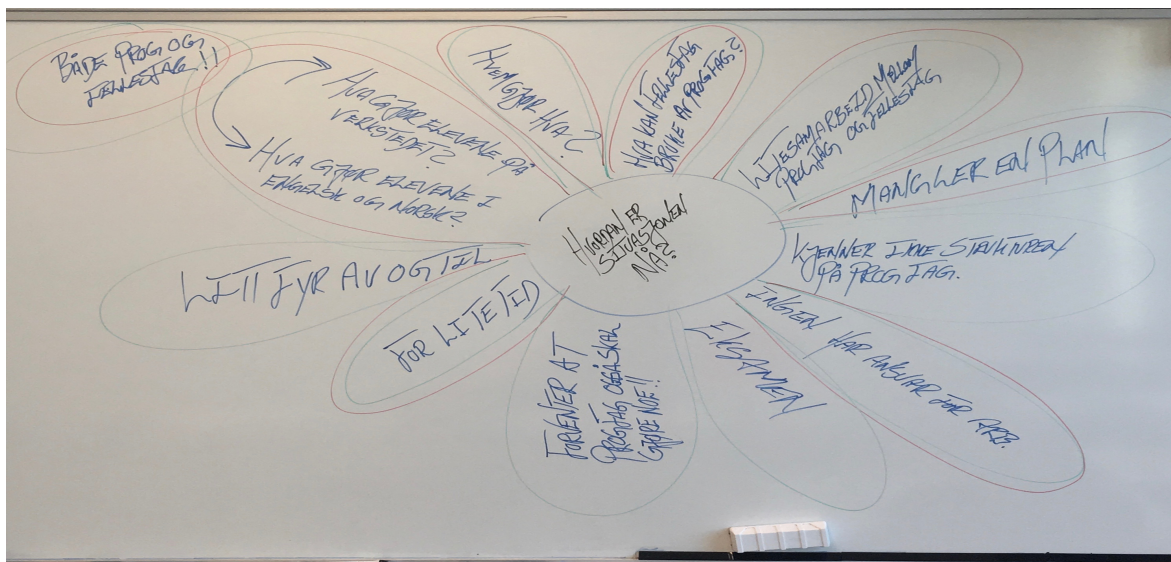 BÅDE PROG OG
FELLESFAG!!
HVA GJØR ELEVENE PÅ
VERKSTEDET?
HVA GJØR ELEVENE I
ENGELSK OG NORSK?
HVEM GJØR HVA?
HVA KAN FELLESFAG
BRUKE AV PROGFAG?
LITE SAMARBEID MELLOM
PROGFAG OG FELLESFAG
MANGLER EN PLAN
KJENNER IKKE STRUKTUREN
PÅ PROGFAG.
INGEN HAR ANSVAR FOR ARB.
EKSAMEN
FORVENTER AT
PROGFAG OGSÅ SKAL
GJØRE NOE!!
FOR LITE TID
LITT FYR AV OG TIL
HVORDAN ER
SITUASJONEN
NÅ?